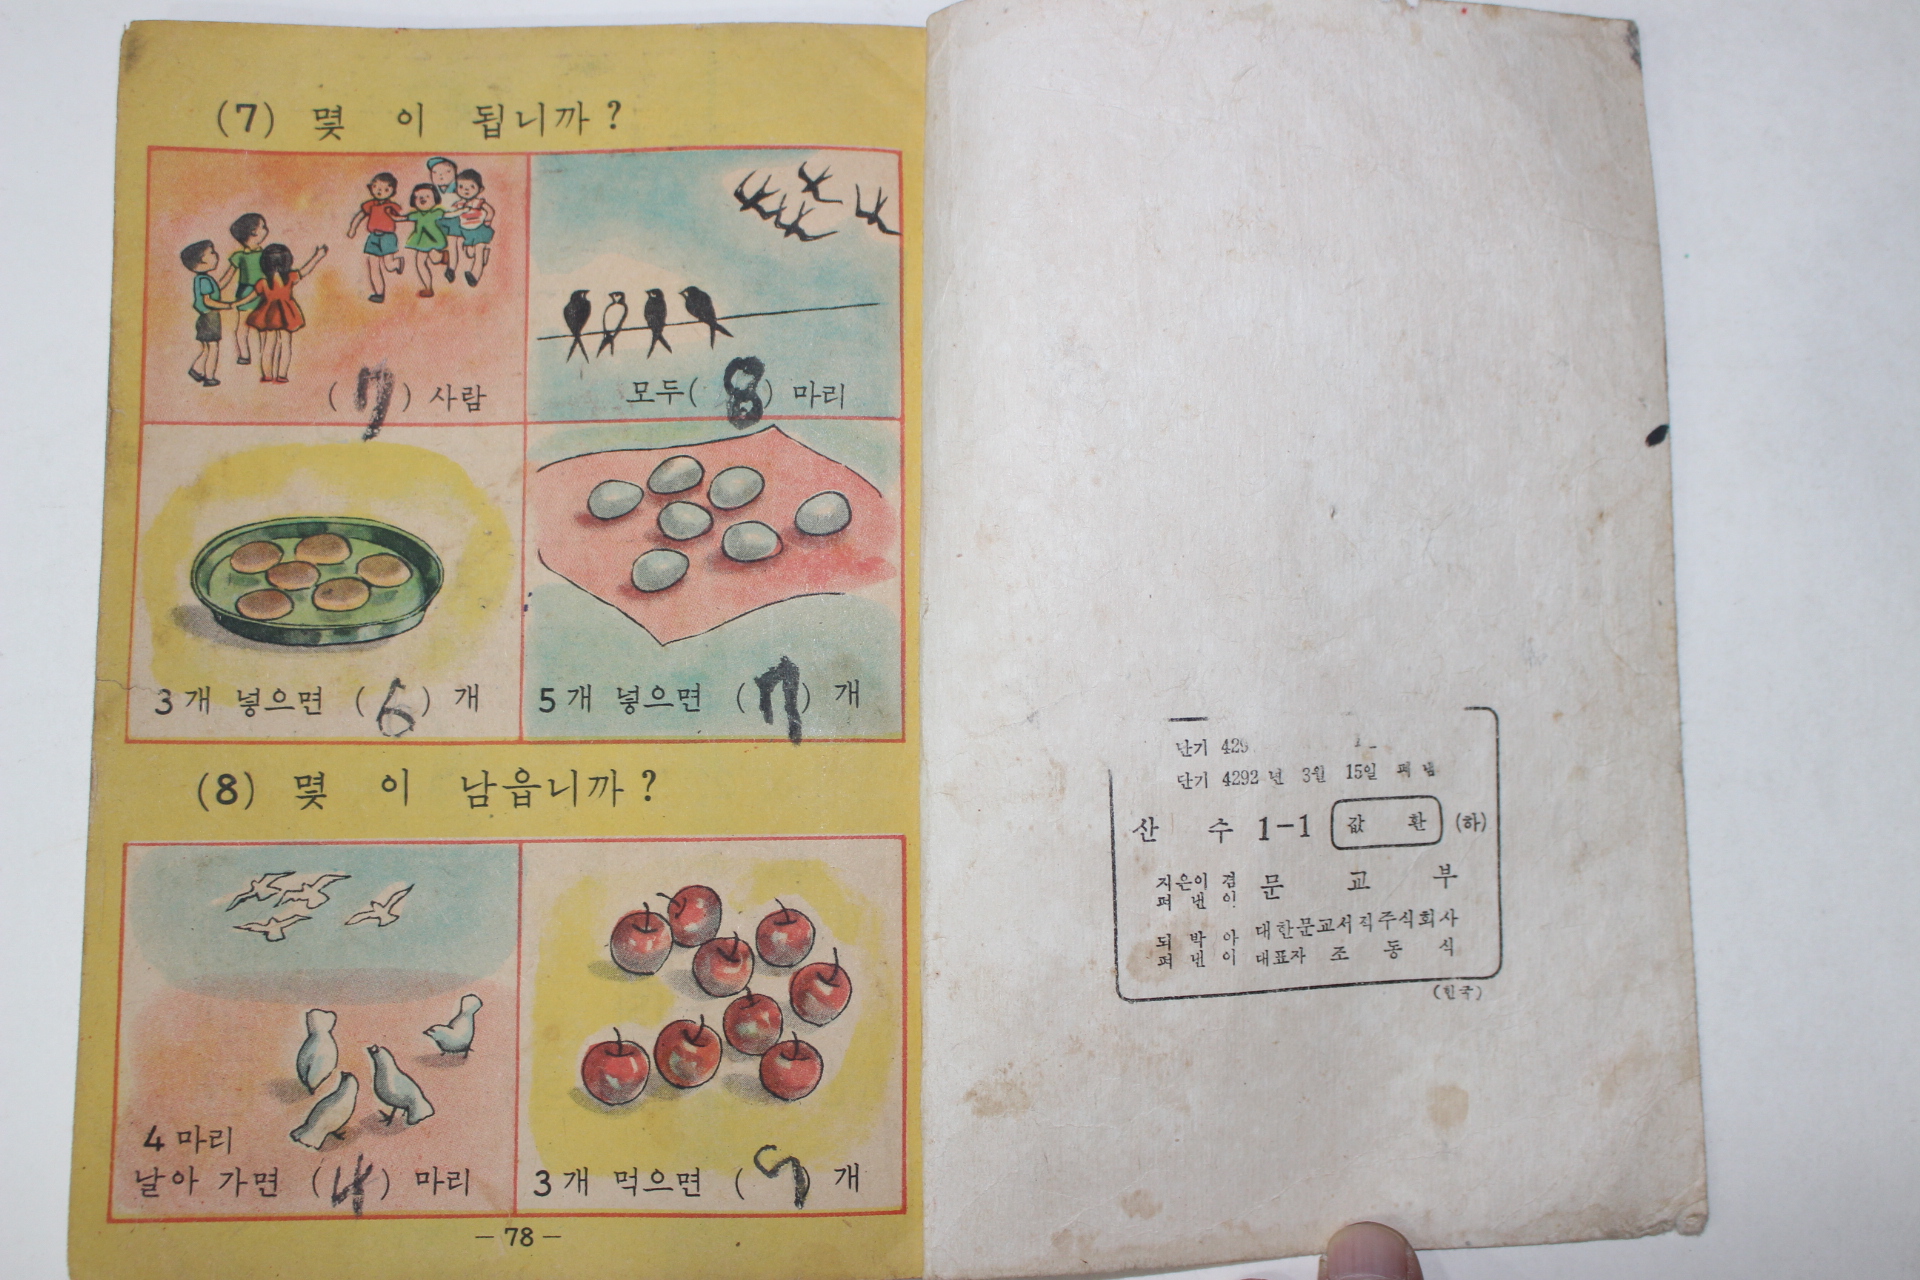 (7) 몇 이 됩니까?
(7) 사람
모두(8) 마리
3개 넣으면 (6) 개
5개 넣으면 (7) 개
(8) 몇 이 남읍니까?
4 마리
날아 가면 (4) 마리
3개 먹으면 (9) 개
— 78 —
단기 429
단기 4292년 3월 15일 펴냄
산 수 1-1 값 환 (하)
지은이 겸 문 교 부
펴 낸 이
되 박 아 대한문교서적주식회사
펴 낸 이 대표자 조 동 식
(한국)